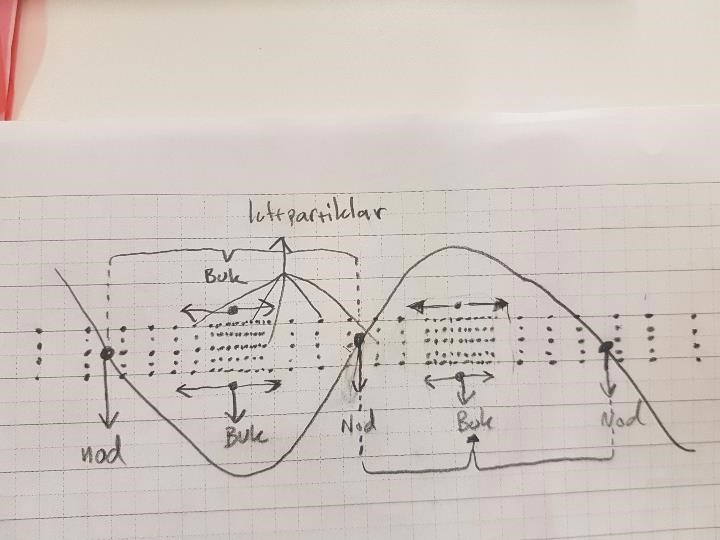 luftpartiklar
Buk
nod
Buk
Nod
Buk
Nod